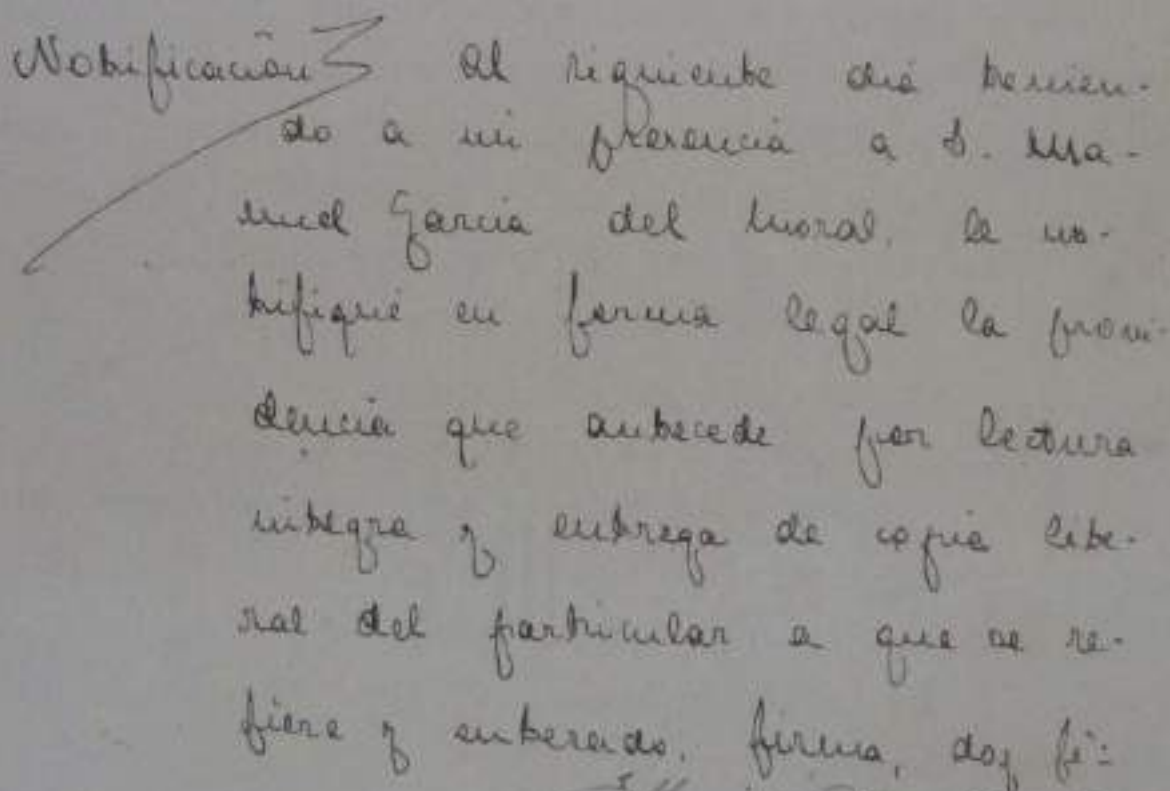 Notificación Al siguiente dia tenien-
do a mi presencia a D. Ma-
nuel García del Moral, le no-
tifiqué en forma legal la provi-
dencia que antecede por lectura
integra y entrega de copia lite-
ral del particular a que se re-
fiere y enterado, firma, doy fé=